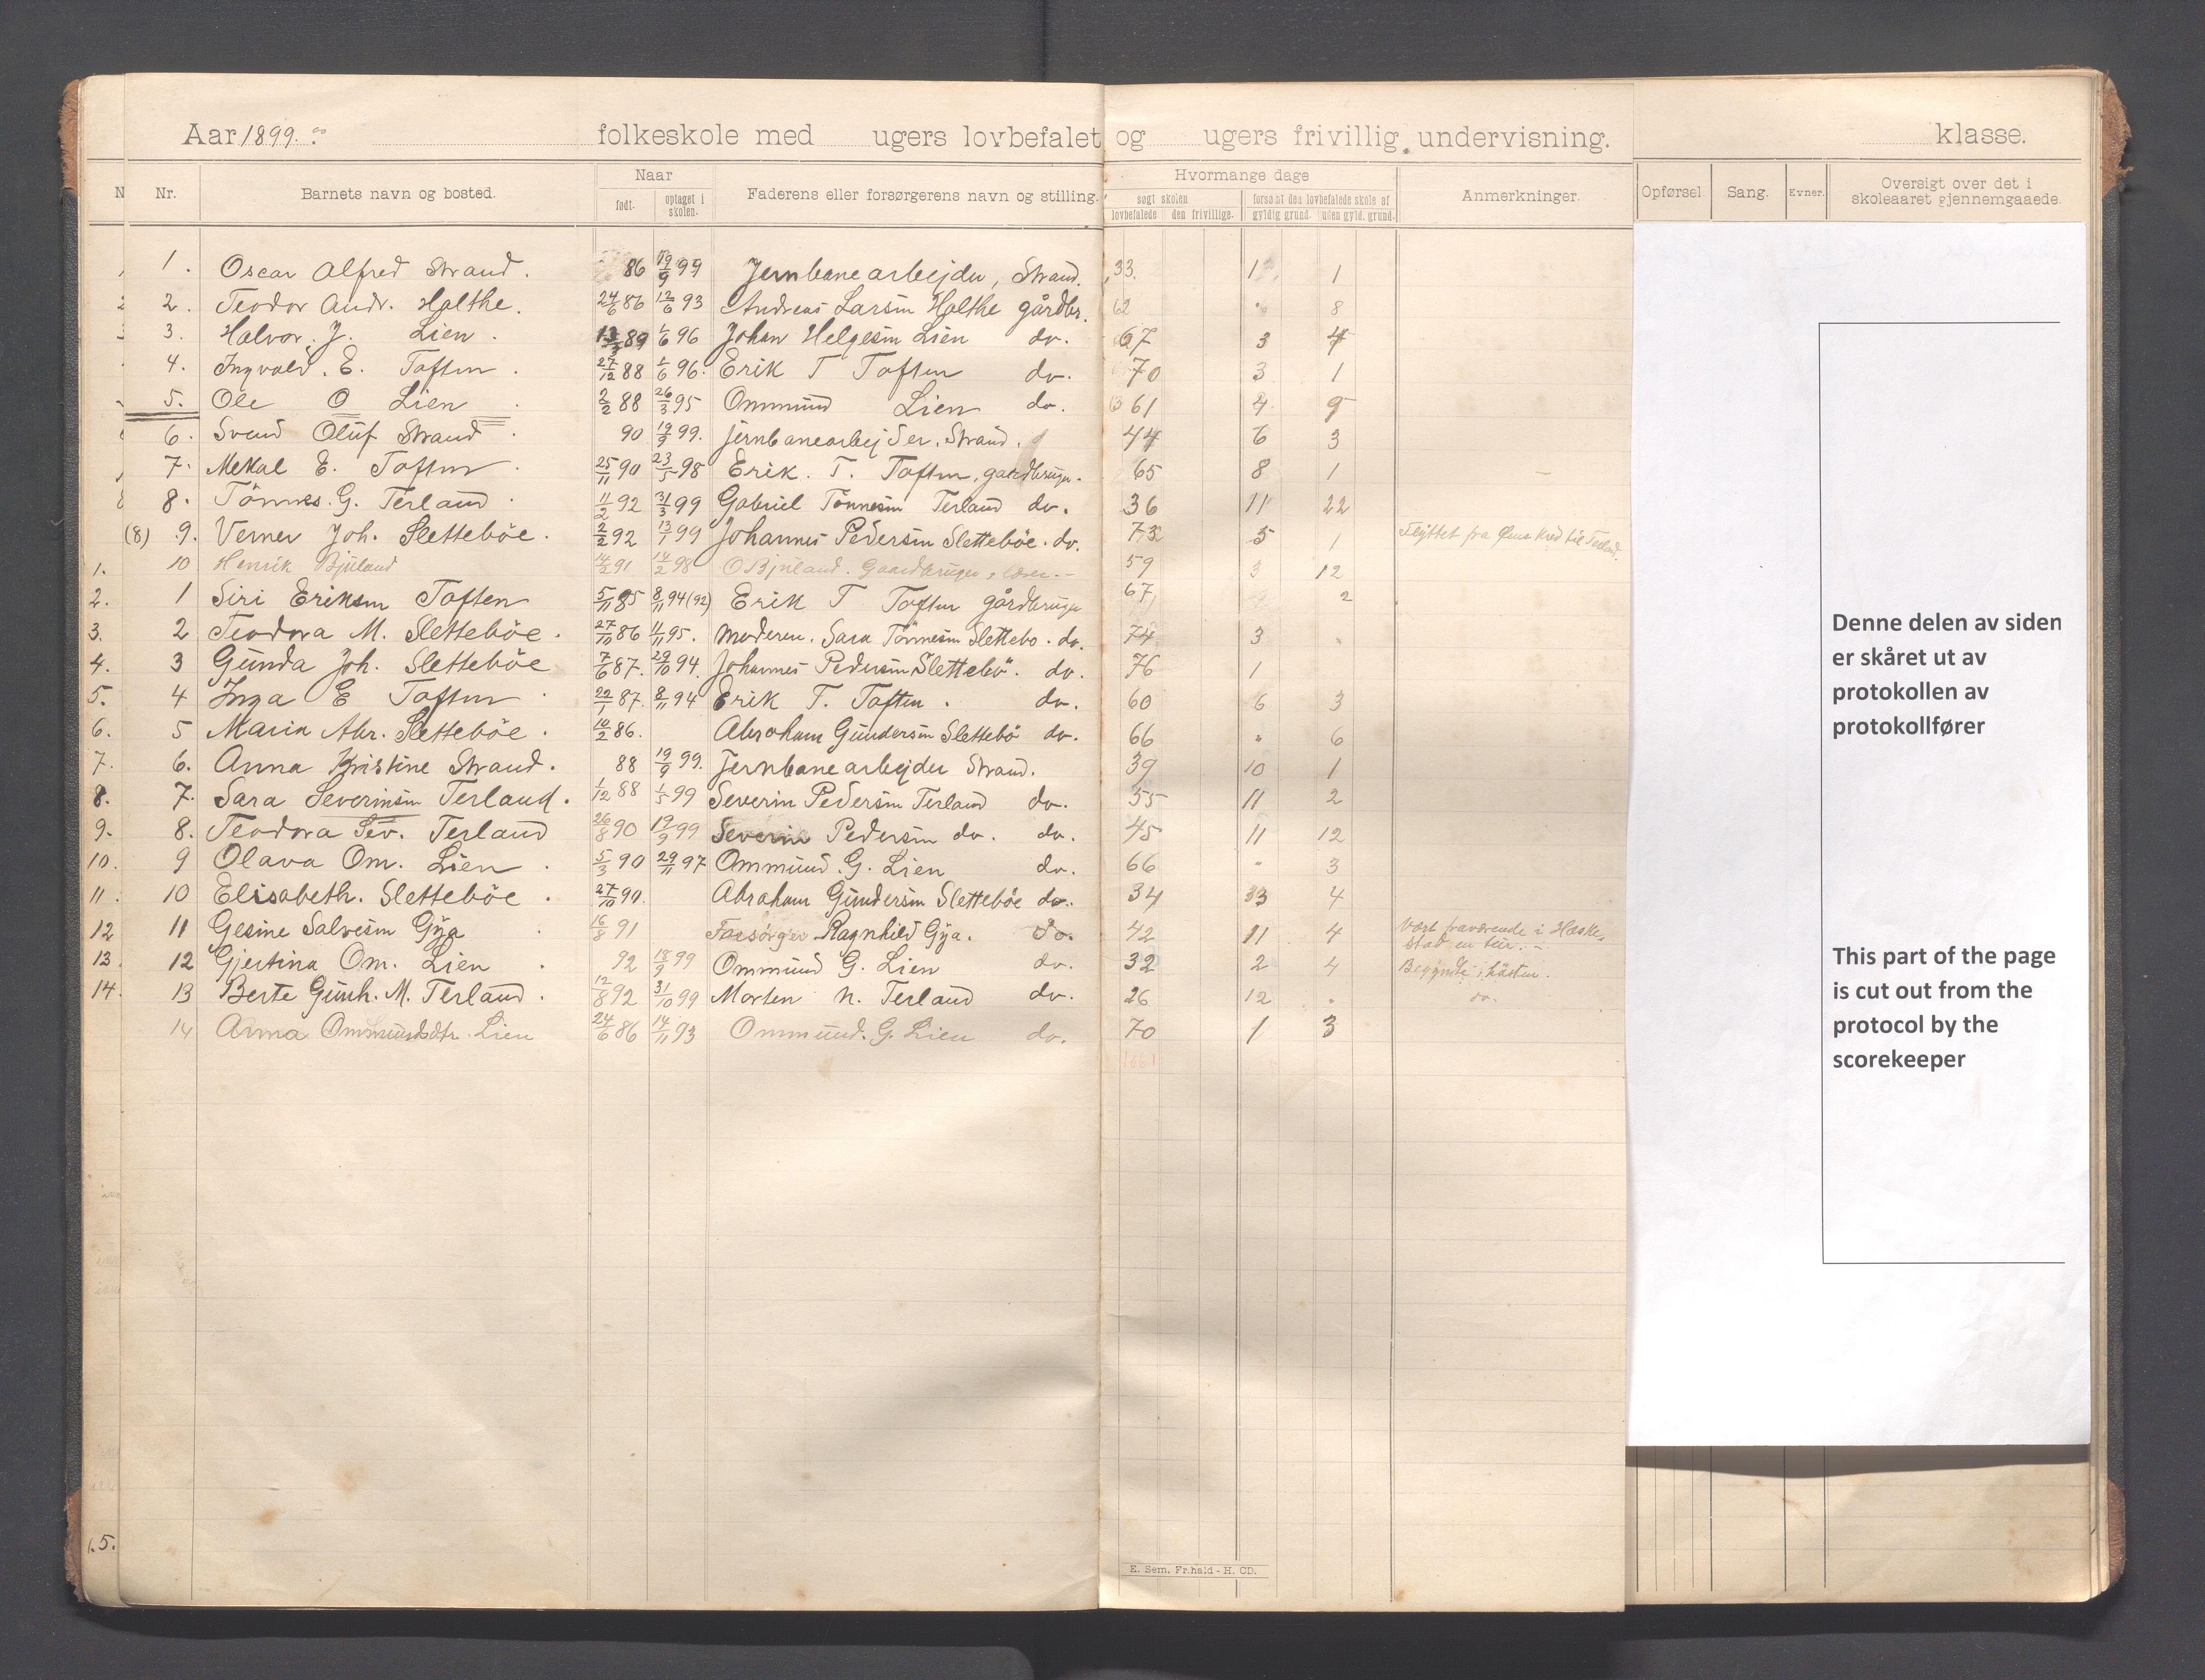 Aar 1899. folkeskole med ugers lovbefalet og ugers frivillig undervisning. klasse.
Nr. Barnets navn og bosted. Naar Faderens eller forsørgerens navn og stilling. Hvormange dage Anmerkninger. Opførsel. Sang. Evner. Oversigt over det i skoleaaret gjennemgaaede.
født. optaget i skolen. søgt skolen forsømt den lovbefalede skole af
lovbefalede den frivillige. gyldig grund. uden gyld. grund.
1. Oscar Alfred Strand. 86 19/9 99 Jernbanearbejder, Strand. 33. 1 1
2. Teodor Andr. Holthe. 24/6 86 12/6 93 Andreas Larsen Holthe gårdbr. 62 " 8
3. Halvor J. Lien. 89 1/6 96 Johan Helgesen Lien do. 67 3 4
4. Ingvald. E. Toften. 27/12 88 1/6 96. Erik T Toften do. 70 3 1
5. Ole O Lien 2/2 88 26/3 95 Ommund Lien do. 61 4 9
6. Svend Oluf Strand. 90 19/9 99. jernbanearbejder. Strand. 44 6 3
7. Mekal E. Toften. 25/11 90 23/5 98 Erik. T. Toften, gaardbruger. 65 8 1
8. Tönnes. G. Terland. 11/2 92 31/3 99 Gabriel Tönnesen Terland do. 36 11 22
(8) 9. Verner Joh. Sletteböe. 2/2 92 13/1 99 Johannes Pedersen Sletteböe. do. 73 5 1 Flyttet fra Öens Kred til Terland.
1. 10 Henrik Bjuland 14/2 91 14/2 98 O Bjuland. Gaardbruger, lærer. 59 3 12
2. 1 Siri Eriksen Toften 5/11 85 8/11 94 (92) Erik T Toften gårdbruger 67 2
3. 2 Teodora M. Sletteböe. 27/10 86 11/11 95. Moderen. Sara Tönnesen Slettebö. do. 74 3
4. 3 Gunda Joh. Sletteböe 7/6 87. 29/10 94. Johannes Pedersen Slettebö. do. 76 1
5. 4 Inga E Toften. 22/1 87. 8/11 94 Erik T. Toften. do. 60 6 3
6. 5 Maria Abr. Sletteböe. 10/2 86. Abraham Gundersen Slettebö do. 66 " 6
7. 6. Anna Kristine Strand. 88 19/9 99. Jernbanearbejder Strand. 39 10 1
8. 7. Sara Severinsen Terland. 1/12 88 1/5 99 Severin Pedersen Terland do. 55 11 2
9. 8. Teodora Sev. Terland 26/8 90 19/9 99 Severin Pedersen do. do. 45 11 12
10. 9 Olava Om. Lien. 5/3 90 29/11 97 Ommund. G. Lien do. 66 " 3
11. 10 Elisabeth. Sletteböe. 27/10 90. Abraham Gundersen Sletteböe do. 34 33 4
12 11 Gesine Salvesen Gya 16/8 91 Forsørger Ragnhild Gya. do. 42 11 4 Vært fraværende i Heske-
stad en tur. –
13. 12 Gjertina Om. Lien. 92 18/9 99 Ommund G. Lien do. 32 2 4 Begyndte i hösten.
14. 13 Berte Gunh. M. Terland. 12/8 92 31/10 99 Morten N. Terland do. 26 12 . do.
14 Anna Ommundsdtr. Lien 24/6 86 14/11 93 Ommund. G. Lien do. 70 1 3
5.
E. Sem. Fr.hald - H. CD.
Denne delen av siden
er skåret ut av
protokollen av
protokollfører
This part of the page
is cut out from the
protocol by the
scorekeeper